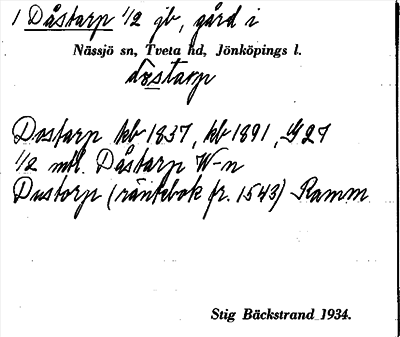 1 Dåstarp 1/2 jb, gård i
Nässjö sn, Tveta hd, Jönköpings l.
dåstarp
Dostarp kb 1837, kb 1891, G 27
1/2 mtl. Dåstarp W-n
Dustorp (räntebok fr. 1543) Ramm
Stig Bäckstrand 1934.